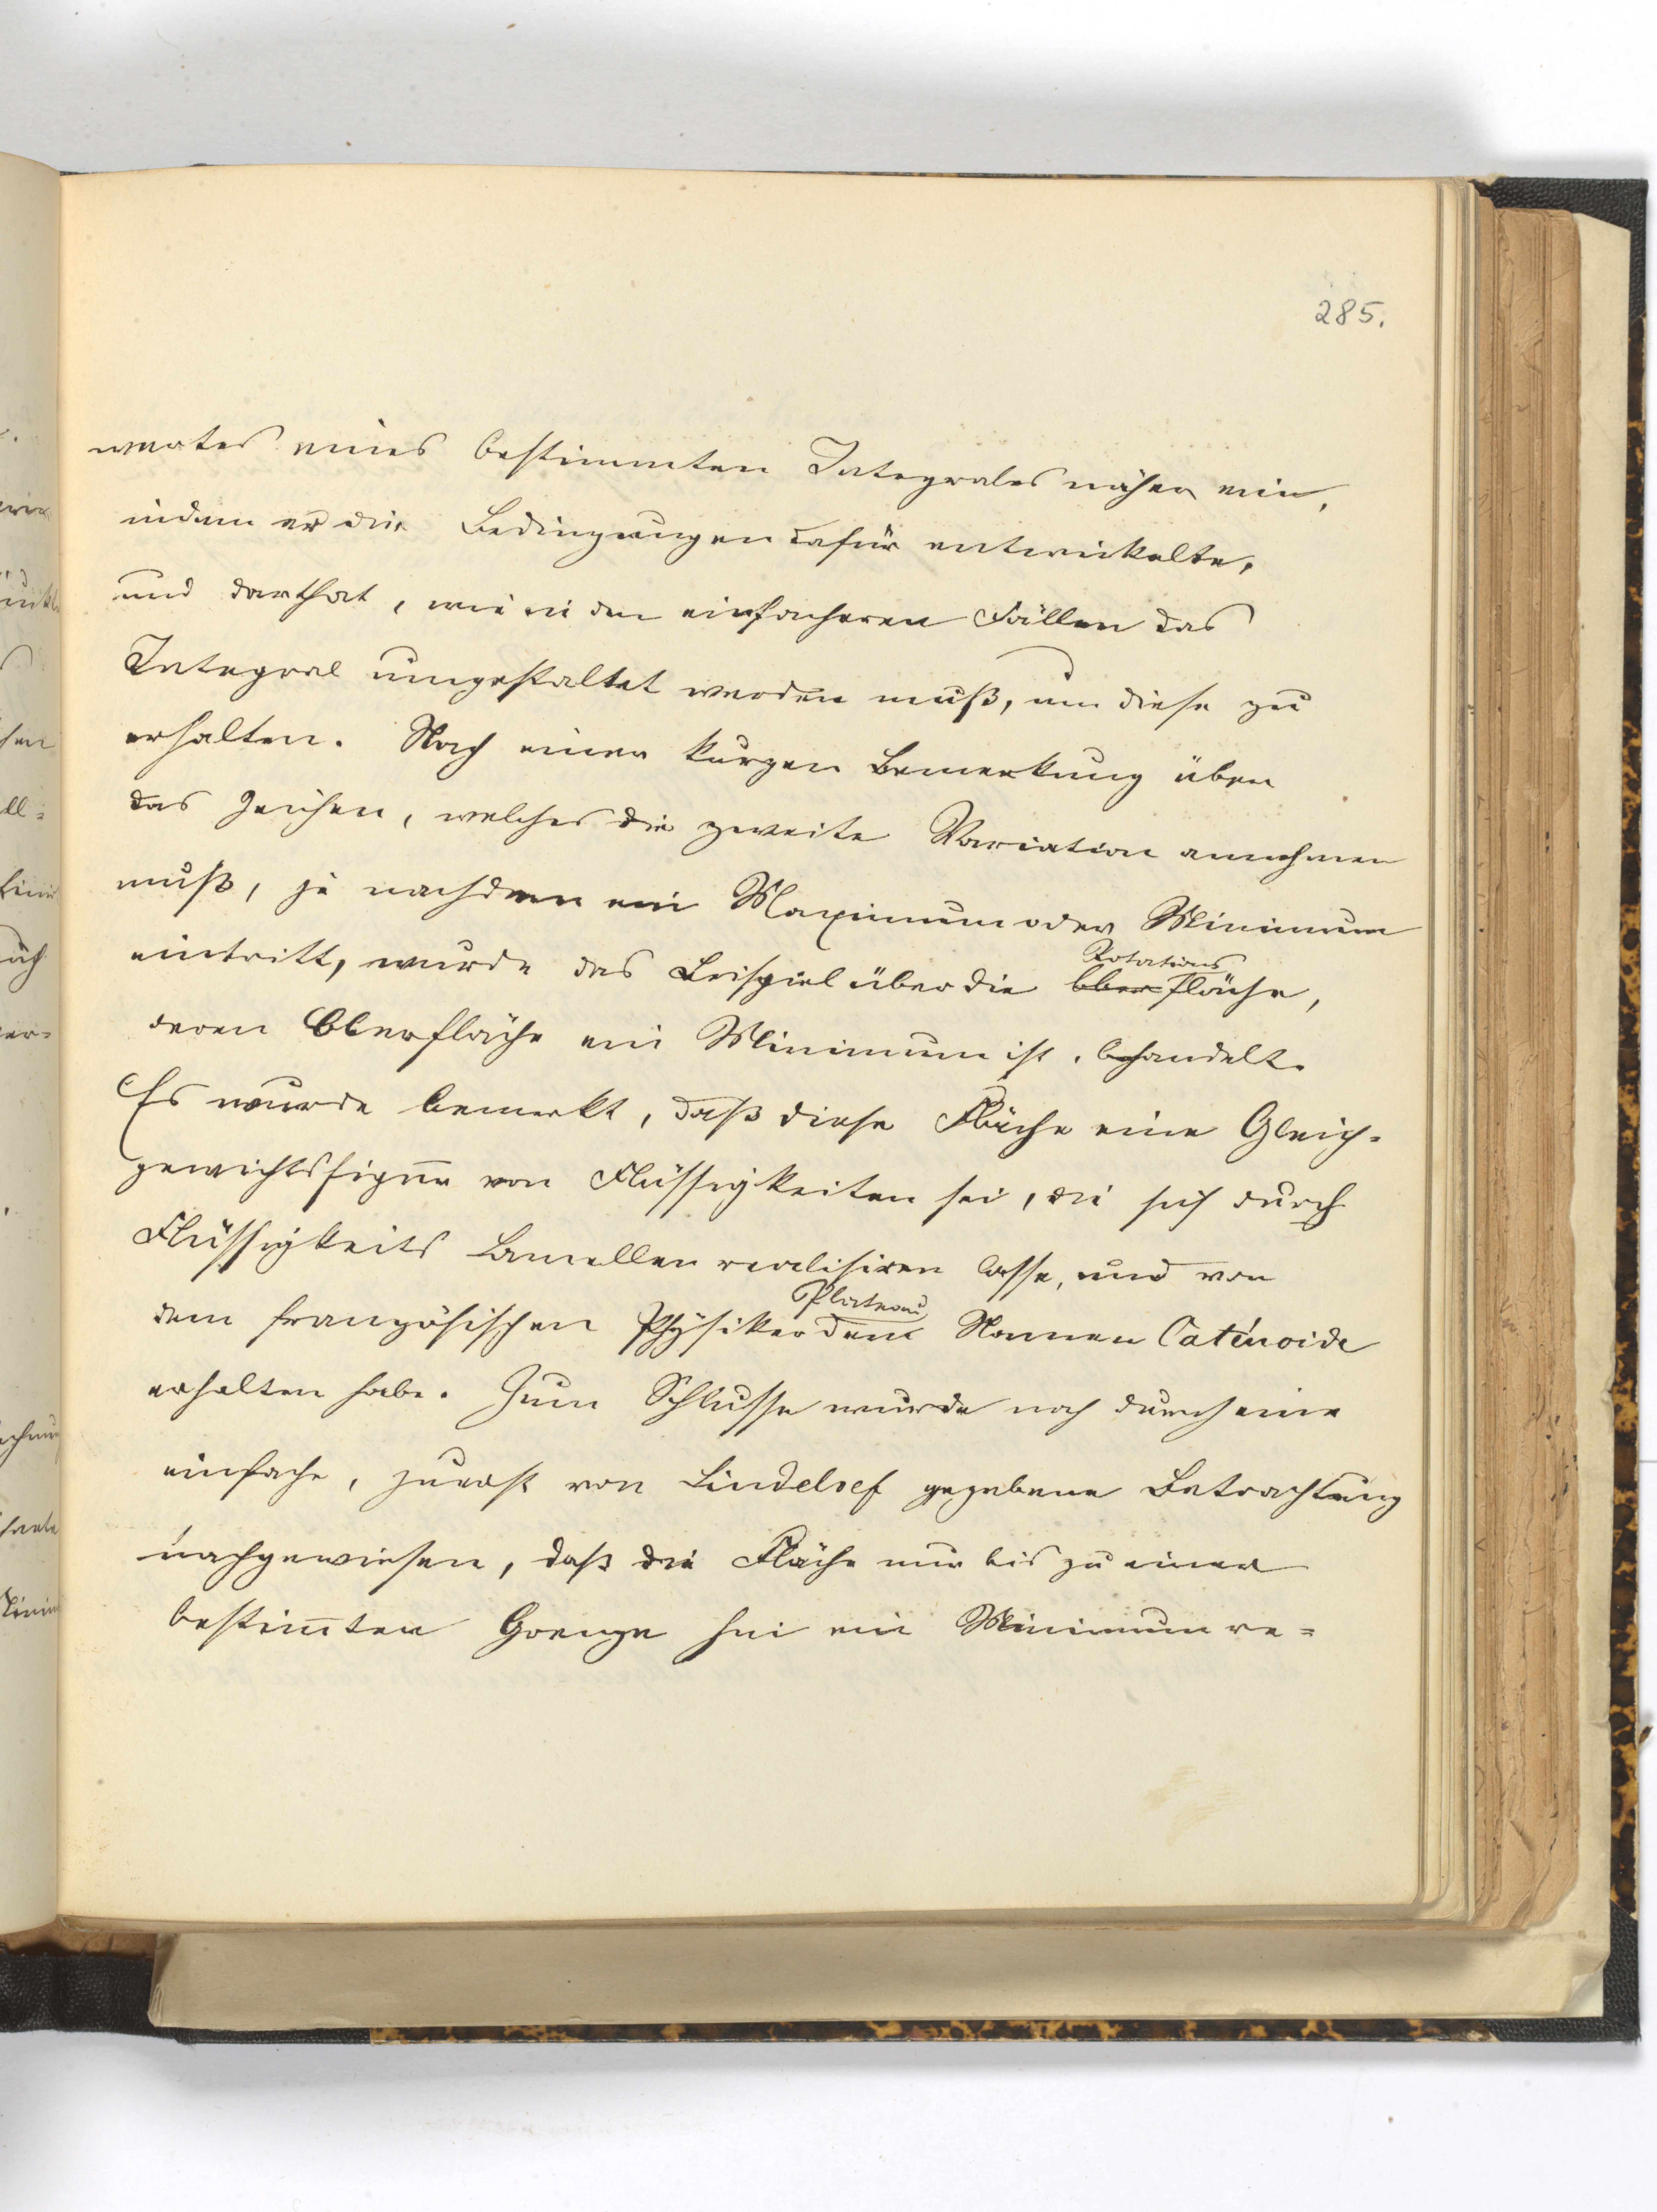 285.
wertes eines bestimmten Integrales näher ein,
indem er die Bedingungen dafür entwickelte,
und darthat, wie in den einfacheren Fällen das
Integral umgestaltet werden muß, um diese zu
erhalten. Nach einer kurzen Bemerkung über
das Zeichen, welches die zweite Variation annehmen
muß, je nachdem ein Maximum oder Minimum
Rotations
eintritt, wurde das Beispiel über die Oberfläche,
deren Oberfläche ein Minimum ist, behandelt.
Es wurde bemerkt, daß diese Fläche eine Gleich-
gewichtsfigur von Flüssigkeiten sei, die sich durch
Flüssigkeits Lamellen realisiren lasse, und von
Plateau
dem französischen Physiker den Namen Caténoide
erhalten habe. Zum Schlusse wurde noch durch eine
einfache, zuerst von Lindeloef gegebene Betrachtung
nachgewiesen, daß die Fläche nur bis zu einer
bestimmten Grenze hin ein Minimum re=